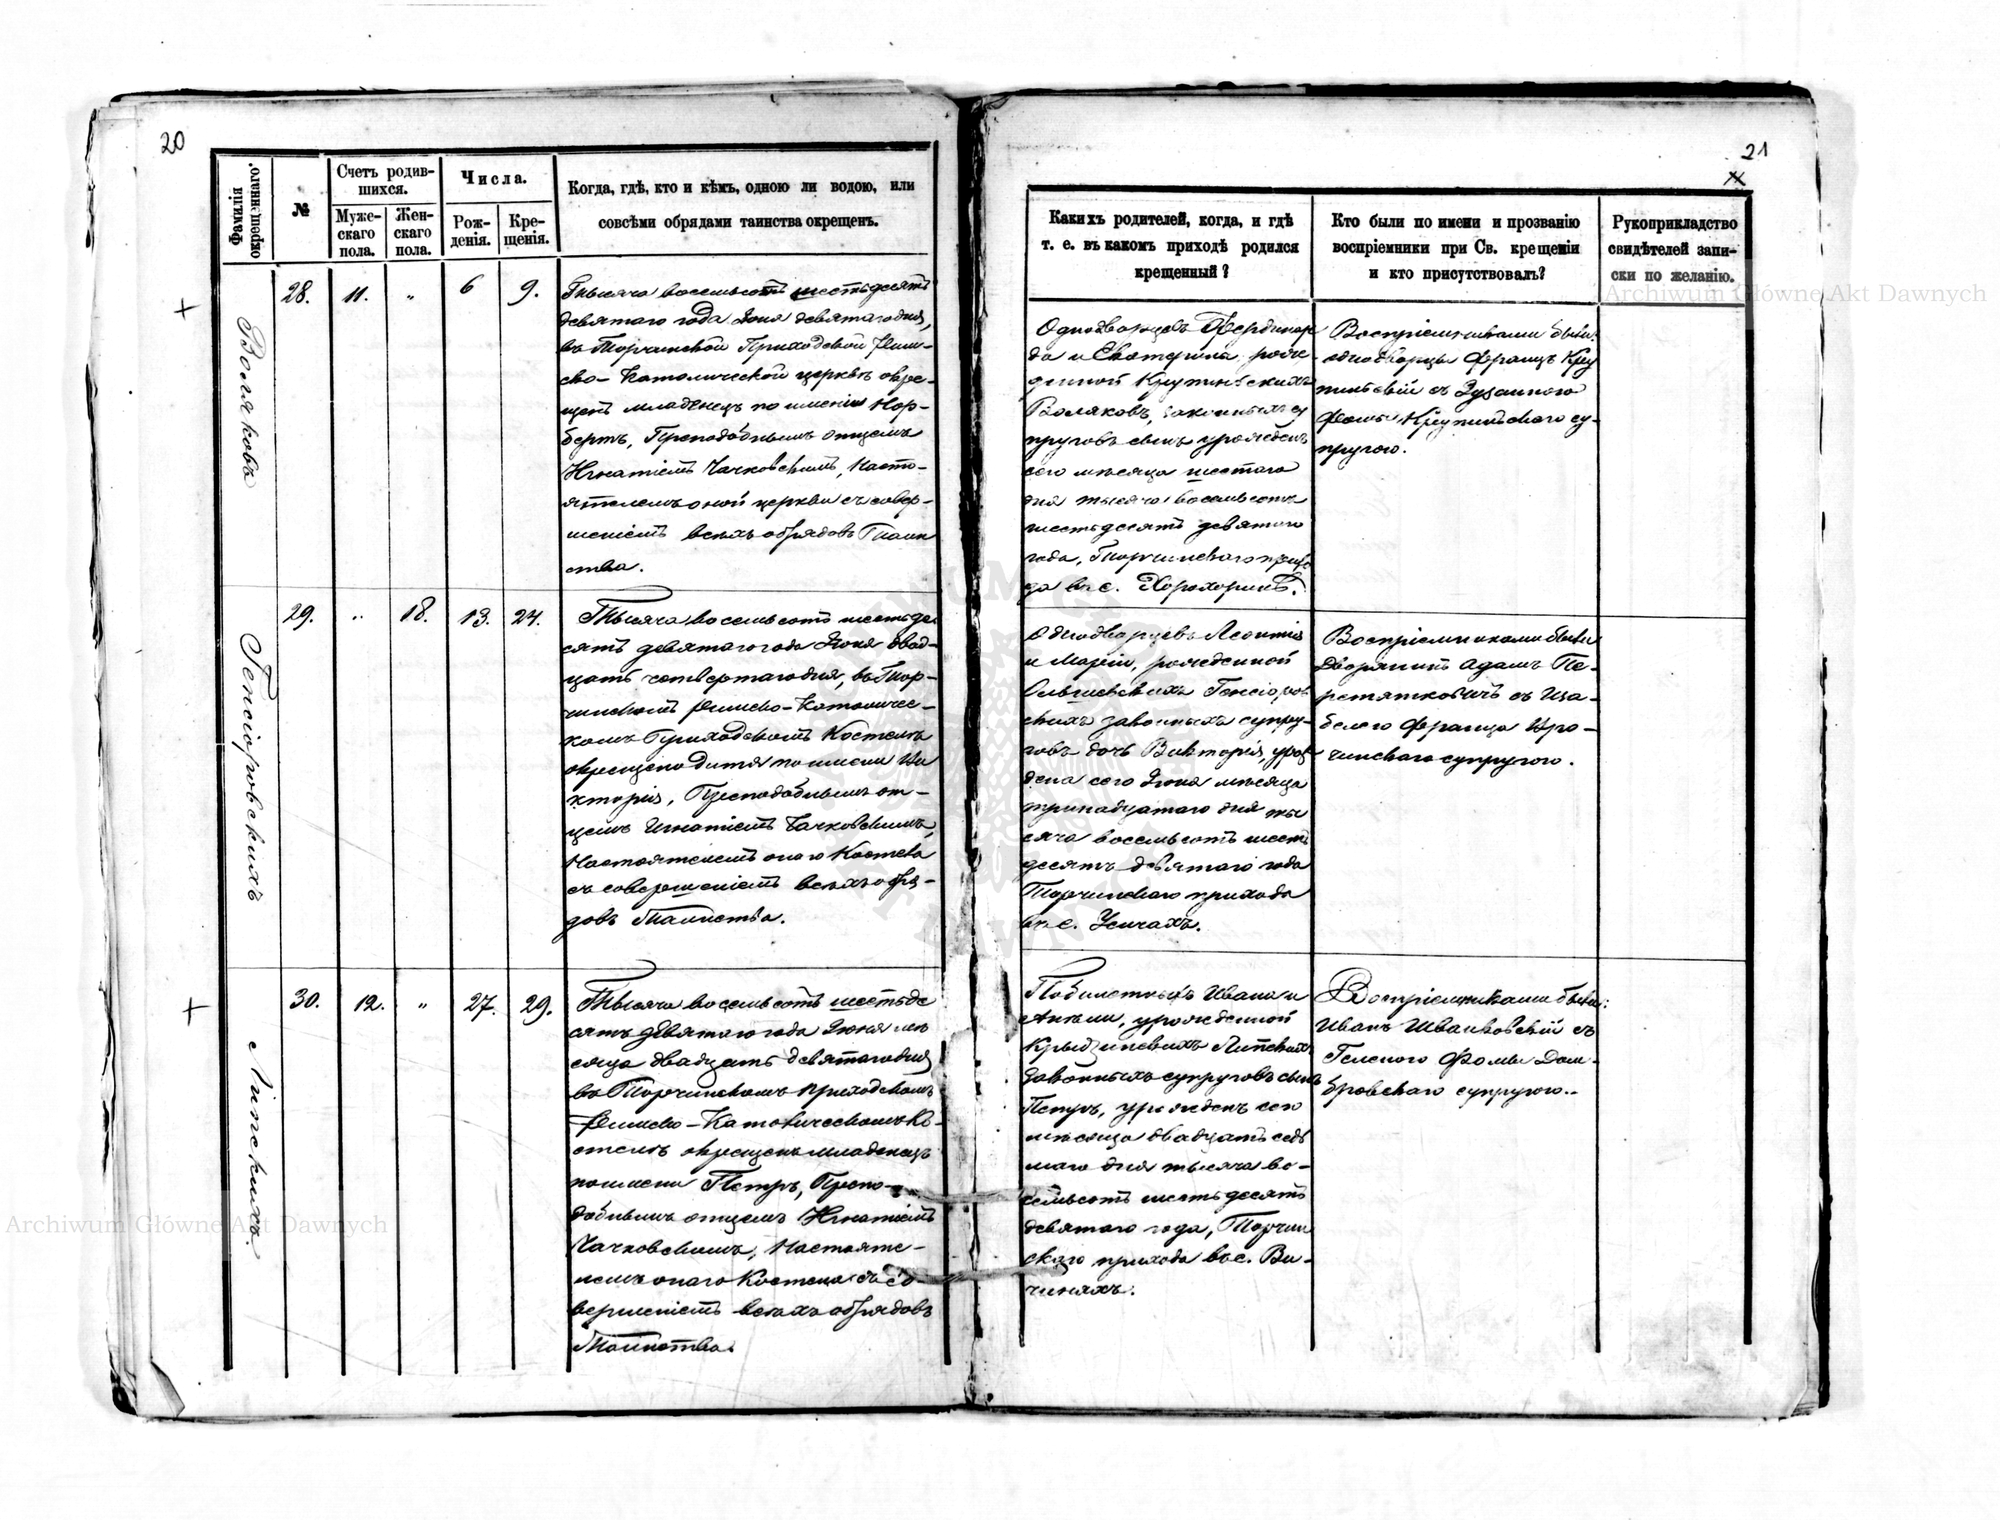 20
Фамилія
окрещенаго.
№
Счетъ родив-
шихся.
Муже-
скаго
пола.
Жен-
скаго
пола.
Числа.
Рож-
денія.
Кре-
щенія.
Когда, гдѣ, кто и кѣмъ, одною ли водою, или
совсѣми обрядами таинства окрещенъ.
Воляковъ
28.
11.
"
6
9.
Тысяча восемьсотъ шестьдесятъ
девятаго года Іюня девятаго дня,
въ Торчинской Приходской Рим-
ско-Католической церквѣ окре-
щенъ младенецъ по имени Нор-
бертъ, Преподобнымъ отцемъ
Игнатіемъ Чачковскимъ, Насто-
ятелемъ оной церкви съ совер-
шеніемъ всѣхъ обрядовъ Таин
ства.
Генсіоровскихъ
29.
"
18.
13.
24.
Тысяча восемьсотъ шестьде
сятъ девятаго года Іюня двад-
цать четвертаго дня, въ Тор-
чинскомъ Римско-Католичес-
комъ Приходскомъ Костелѣ
окрещено дитя по имени Ви
кторія, Преподобнымъ от-
цемъ Игнатіемъ Чачковскимъ,
Настоятелемъ онаго Костела
съ совершеніемъ всѣхъ обря-
довъ Таинства.
Липскихъ.
30.
12.
"
27.
29.
Тысяча восемьсотъ шестьде
сятъ девятаго года Іюня мѣ
сяца двадцать девятаго дня
въ Торчинскомъ Приходскомъ
Римско-Католическомъ Ко-
стелѣ окрещенъ младенецъ
по имени Петръ, Препо-
добнымъ отцемъ Игнатіемъ
Чачковскимъ, Настояте-
лемъ онаго Костела съ со-
вершеніемъ всѣхъ обрядовъ
Таинства.
21
Какихъ родителей, когда, и гдѣ
т. е. въ какомъ приходѣ родился
крещенный?
Кто были по имени и прозванію
воспріемники при Св. крещеніи
и кто присутствовалъ?
Рукоприкладство
свидѣтелей запи-
ски по желанію.
Однодворцевъ Фердинан
да и Екатерины рож-
денной Крупинскихъ
Воляковъ, законныхъ су
пруговъ сынъ урожденъ
сего мѣсяца шестаго
дня тысяча восемьсотъ
шестьдесятъ девятаго
года, Торчинскаго прихо
да въ с. Хорохоринѣ.
Воспріемниками были:
однодворцы Францъ Кру
пинскій съ Зузанною
Фомы Крупинскаго су-
пругою.
Однодворцевъ Леонтія
и Маріи, рожденной
Генсіоров
скихъ законныхъ супру-
говъ дочь Викторія, урож
дена сего Іюня мѣсяца
тринадцатаго дня ты
сяча восемьсотъ шесть
десятъ девятаго года
Торчинскаго прихода
въ с. Усичахъ.
Воспріемниками были
Дворянинъ Адамъ Пе-
ретятковичъ съ Иза-
белею Франца Яро-
чинскаго супругою.
Побилетныхъ Ивана и
Анели, урожденной
Липскихъ
законныхъ супруговъ сынъ
Петръ, урожденъ сего
мѣсяца двадцать седь
маго дня тысяча во-
семьсотъ шестьдесятъ
девятаго года, Торчин
скаго прихода въ с. Ви-
чиняхъ.
Воспріемниками были:
Иванъ Иванковскій съ
Геленою Фомы Дом-
бровскаго супругою.
Archiwum Główne Akt Dawnych
Archiwum Główne Akt Dawnych